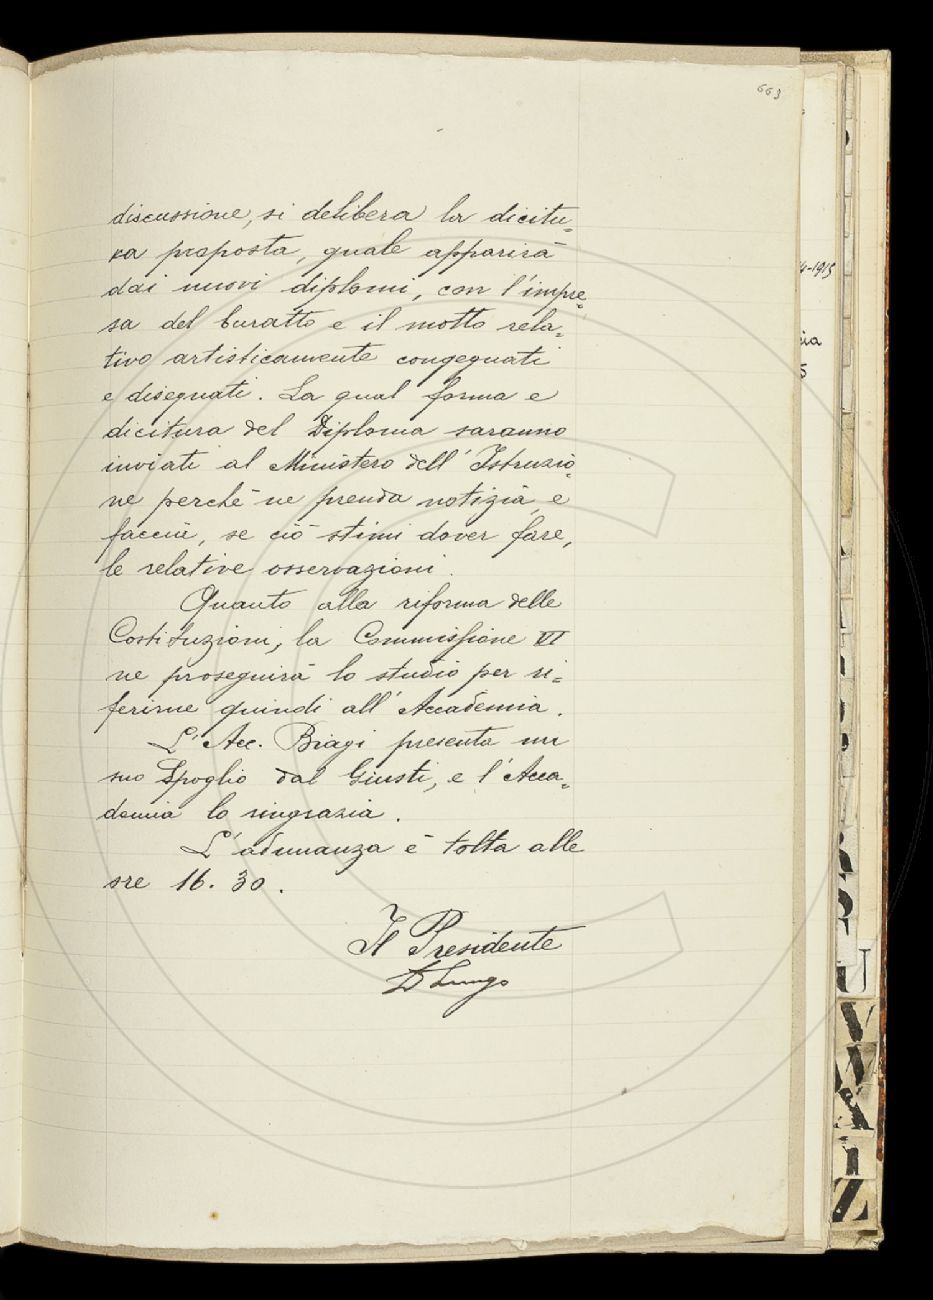 663
discussione, si delibera la dicitu=
ra proposta, quale apparirà
dai nuovi diplomi, con l'impre=
sa del buratto e il motto rela=
tivo artisticamente congegnati
e disegnati. La qual forma e
dicitura del Diploma saranno
inviati al Ministero dell'Istruzio=
ne perchè ne prenda notizia, e
faccia, se ciò stimi dover fare,
le relative osservazioni.
Quanto alla riforma delle
Costituzioni, la Commissione VI
ne proseguirà lo studio per ri=
ferirne quindi all'Accademia.
L'Acc. Biagi presenta un
suo Spoglio dal Giusti, e l'Acca=
demia lo ringrazia.
L'adunanza è tolta alle
ore 16. 30.
Il Presidente
D Lungo
4-1915
ia
5
U
V
W
X
Z